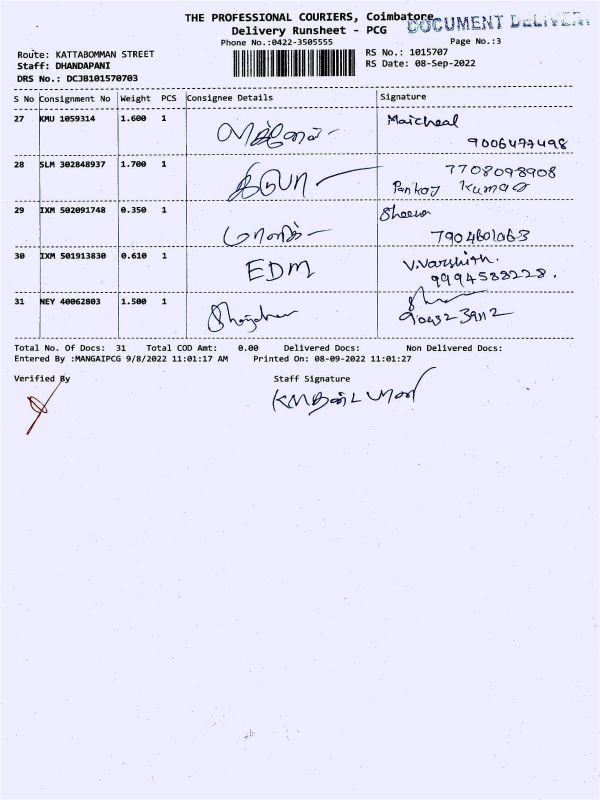 THE PROFESSIONAL COURIERS, Coimbatore
DOCUMENT DELIVERY
Delivery Runsheet - PCG
Phone No.:0422-3505555
Page No.:3
Route: KATTABOMMAN STREET
RS No.: 1015707
Staff: DHANDAPANI
RS Date: 08-Sep-2022
DRS No.: DCJB101570703
S No Consignment No Weight PCS Consignee Details Signature
27 KMU 1059314 1.600 1 Maicheal
9006477498
28 SLM 302848937 1.700 1 7708098908
Pankaj Kumar
29 IXM 502091748 0.350 1 Sheela
7904601063
30 IXM 501913830 0.610 1 EDM V.Varshith.
9994588228.
31 NEY 40062803 1.500 1
Total No. Of Docs: 31 Total COD Amt: 0.00 Delivered Docs: Non Delivered Docs:
Entered By :MANGAIPCG 9/8/2022 11:01:17 AM Printed On: 08-09-2022 11:01:27
Verified By Staff Signature